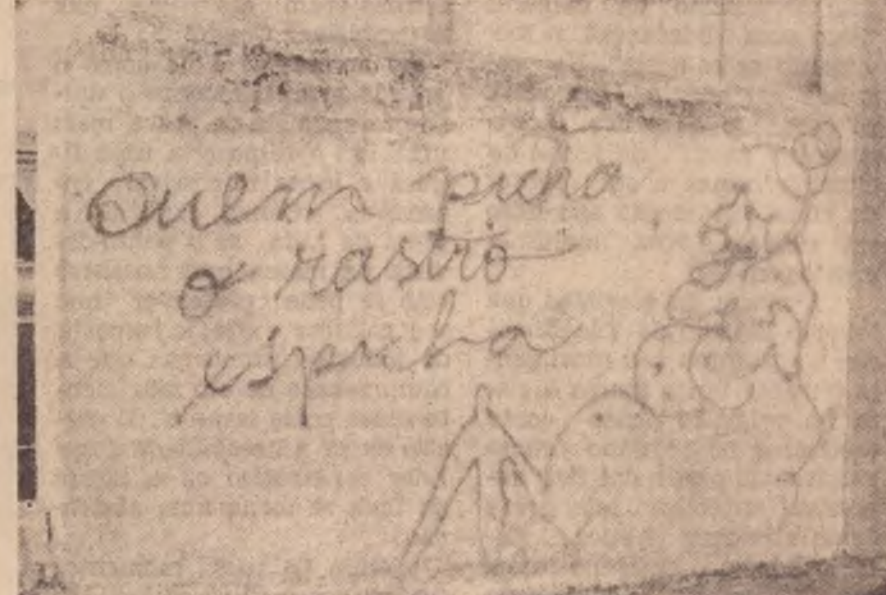 Quem picha
o rastro
espicha